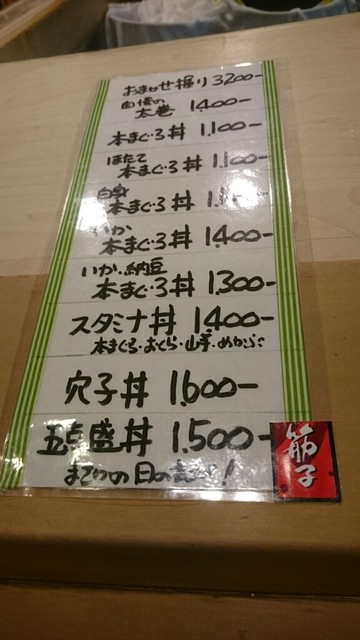 おまかせ握り 3200-
自慢の
太巻 1400-
本まぐろ丼 1,100-
ほたて
本まぐろ丼 1,100-
白身
本まぐろ丼
いか
本まぐろ丼 1400-
いか、納豆
本まぐろ丼 1,300-
スタミナ丼 1400-
本まぐろ・おくら・山芋・めかぶ
穴子丼 1,600-
五点盛丼 1,500-
筋子